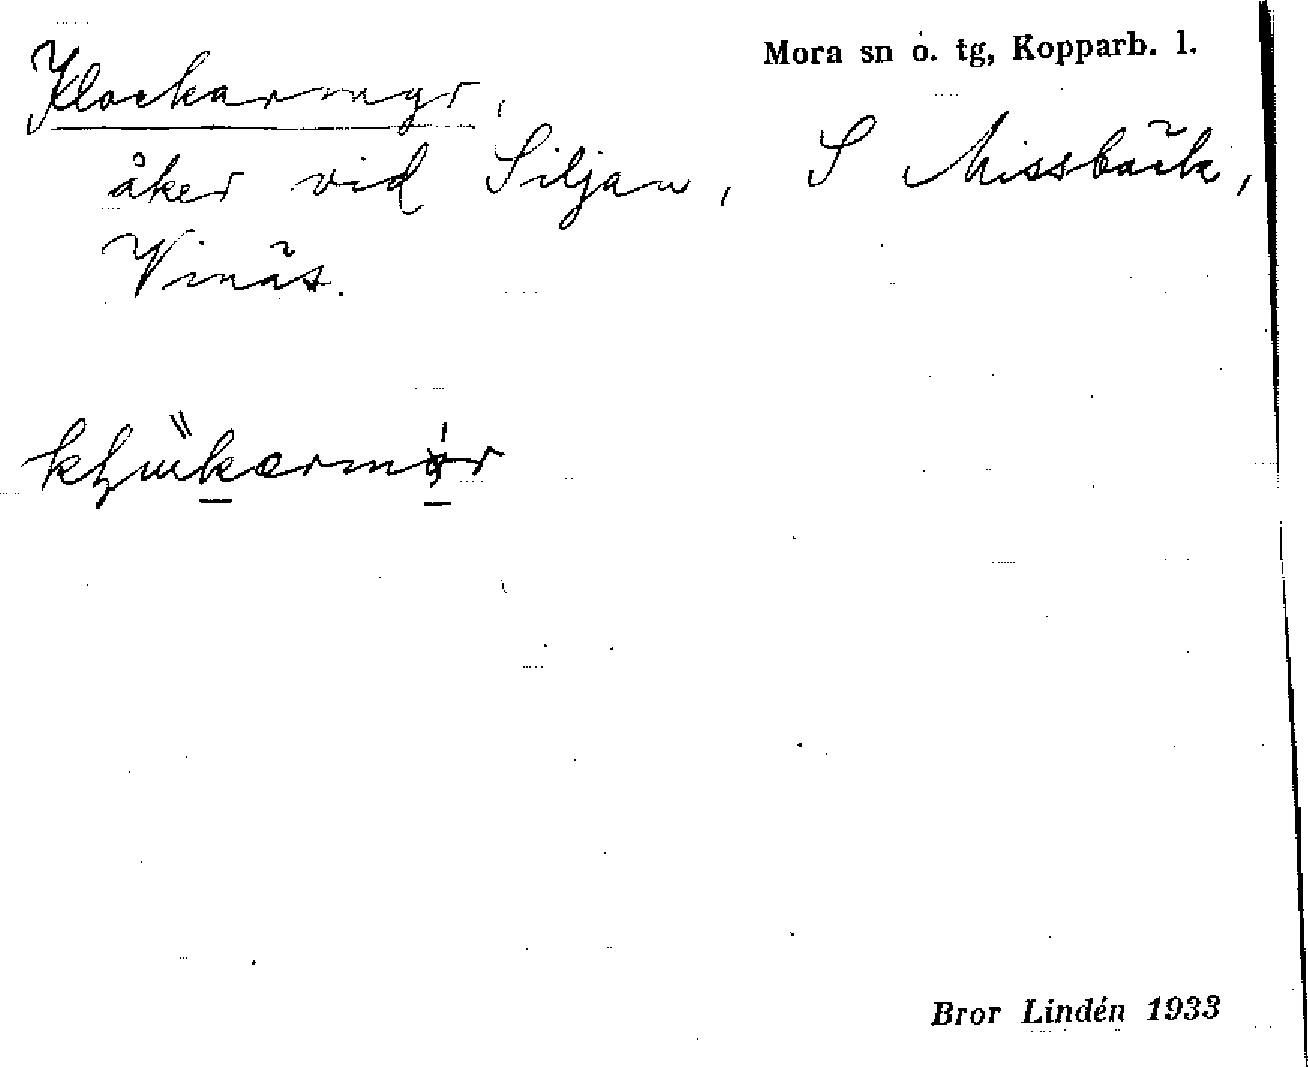 Mora sn o. tg, Kopparb. l.
Klockarmyr,
åker vid Siljan, S Missbäck,
Vinäs.
Bror Lindén 1933